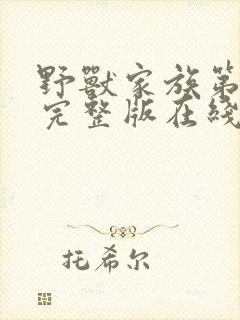 野獸家族第
完整版在綫
托希尔